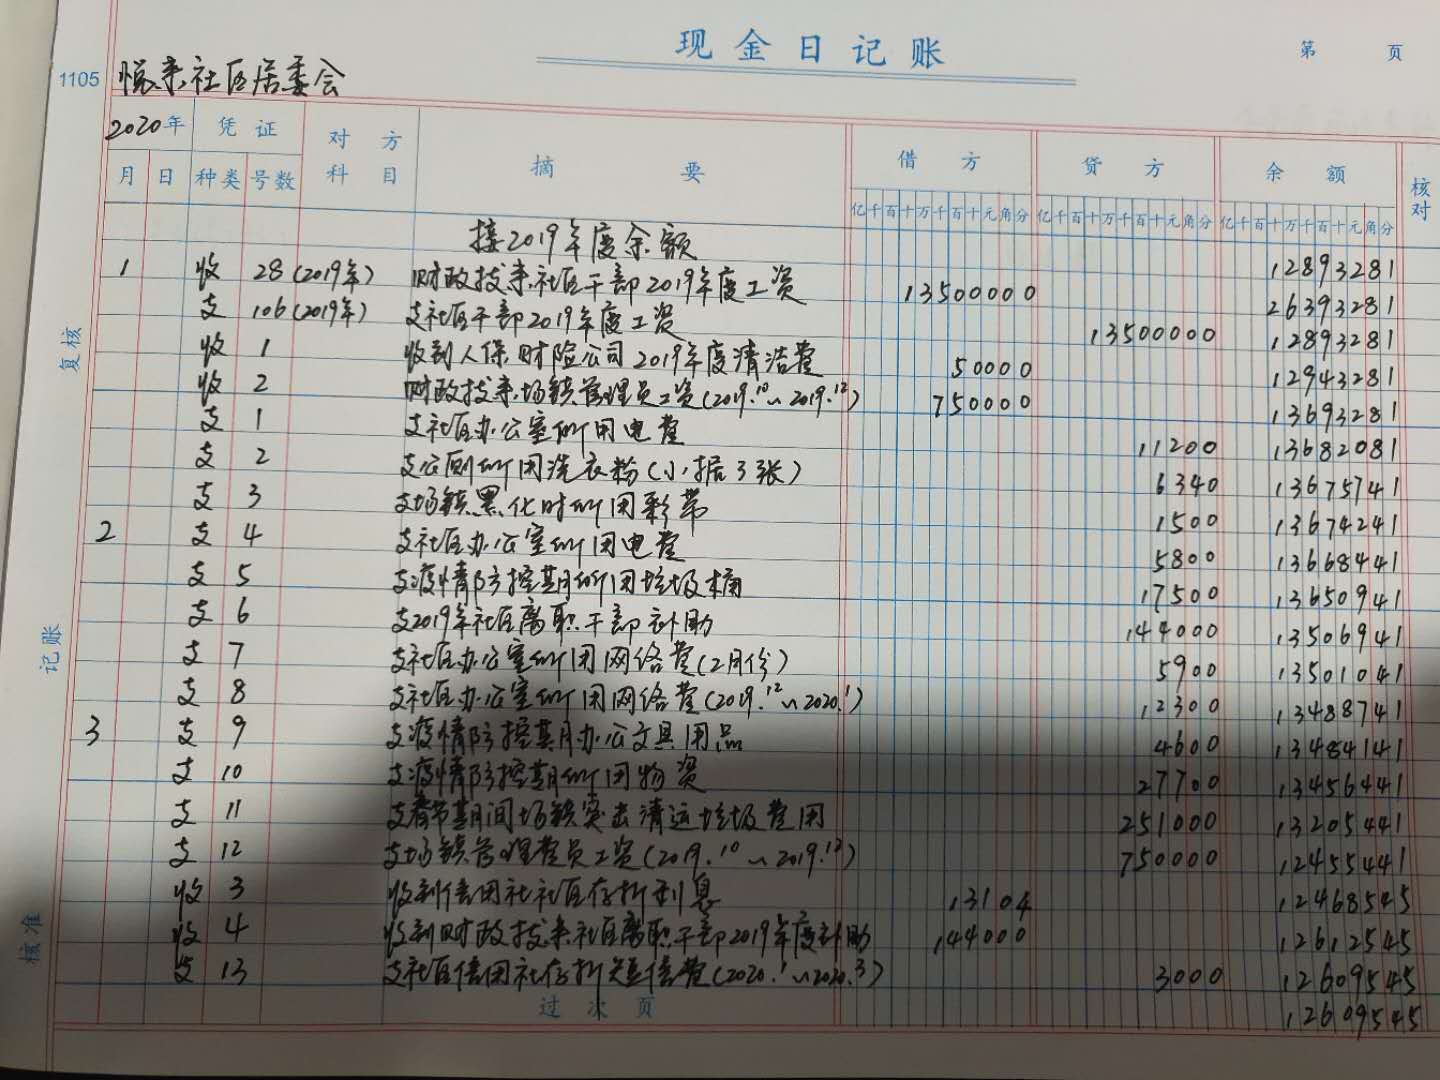 现金日记账
第 页
1105 悦来社区居委会
2020年 凭证 对方科目 摘要 借方 贷方 余额 核对
月 日 种类 号数 亿千百十万千百十元角分 亿千百十万千百十元角分 亿千百十万千百十元角分
接2019年度余额 12893281
1 收 28(2019年) 财政拨来社区干部2019年度工资 13500000 26393281
支 106(2019年) 支社区干部2019年度工资 13500000 12893281
收 1 收到人保财险公司2019年度清洁费 50000 12943281
收 2 财政拨来场镇管理员工资(2019.10~2019.12) 750000 13693281
支 1 支社区办公室所用电费 11200 13682081
支 2 支公厕所用洗衣粉(小据3张) 6340 13675741
支 3 支场镇黑化时所用彩带 1500 13674241
2 支 4 支社区办公室所用电费 5800 13668441
支 5 支疫情防控期所用垃圾桶 17500 13650941
支 6 支2019年社区离职干部补助 144000 13506941
支 7 支社区办公室所用网络费(2月份) 5900 13501041
支 8 支社区办公室所用网络费(2019.12~2020.1) 12300 13488741
3 支 9 支疫情防控期办公文具用品 4600 13484141
支 10 支疫情防控期所用物资 27700 13456441
支 11 支春节期间场镇突击清运垃圾费用 251000 13205441
支 12 支场镇管理费员工资(2019.10~2019.12) 750000 12455441
收 3 收到信用社社区存折利息 13104 12468545
收 4 收到财政拨来社区离职干部2019年度补助 144000 12612545
支 13 支社区信用社存折短信费(2020.1~2020.3) 3000 12609545
过次页 12609545
复核
记账
核准